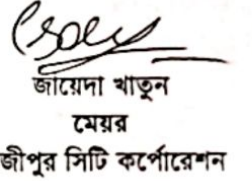 জায়েদা খাতুন
মেয়র
জীপুর সিটি কর্পোরেশন